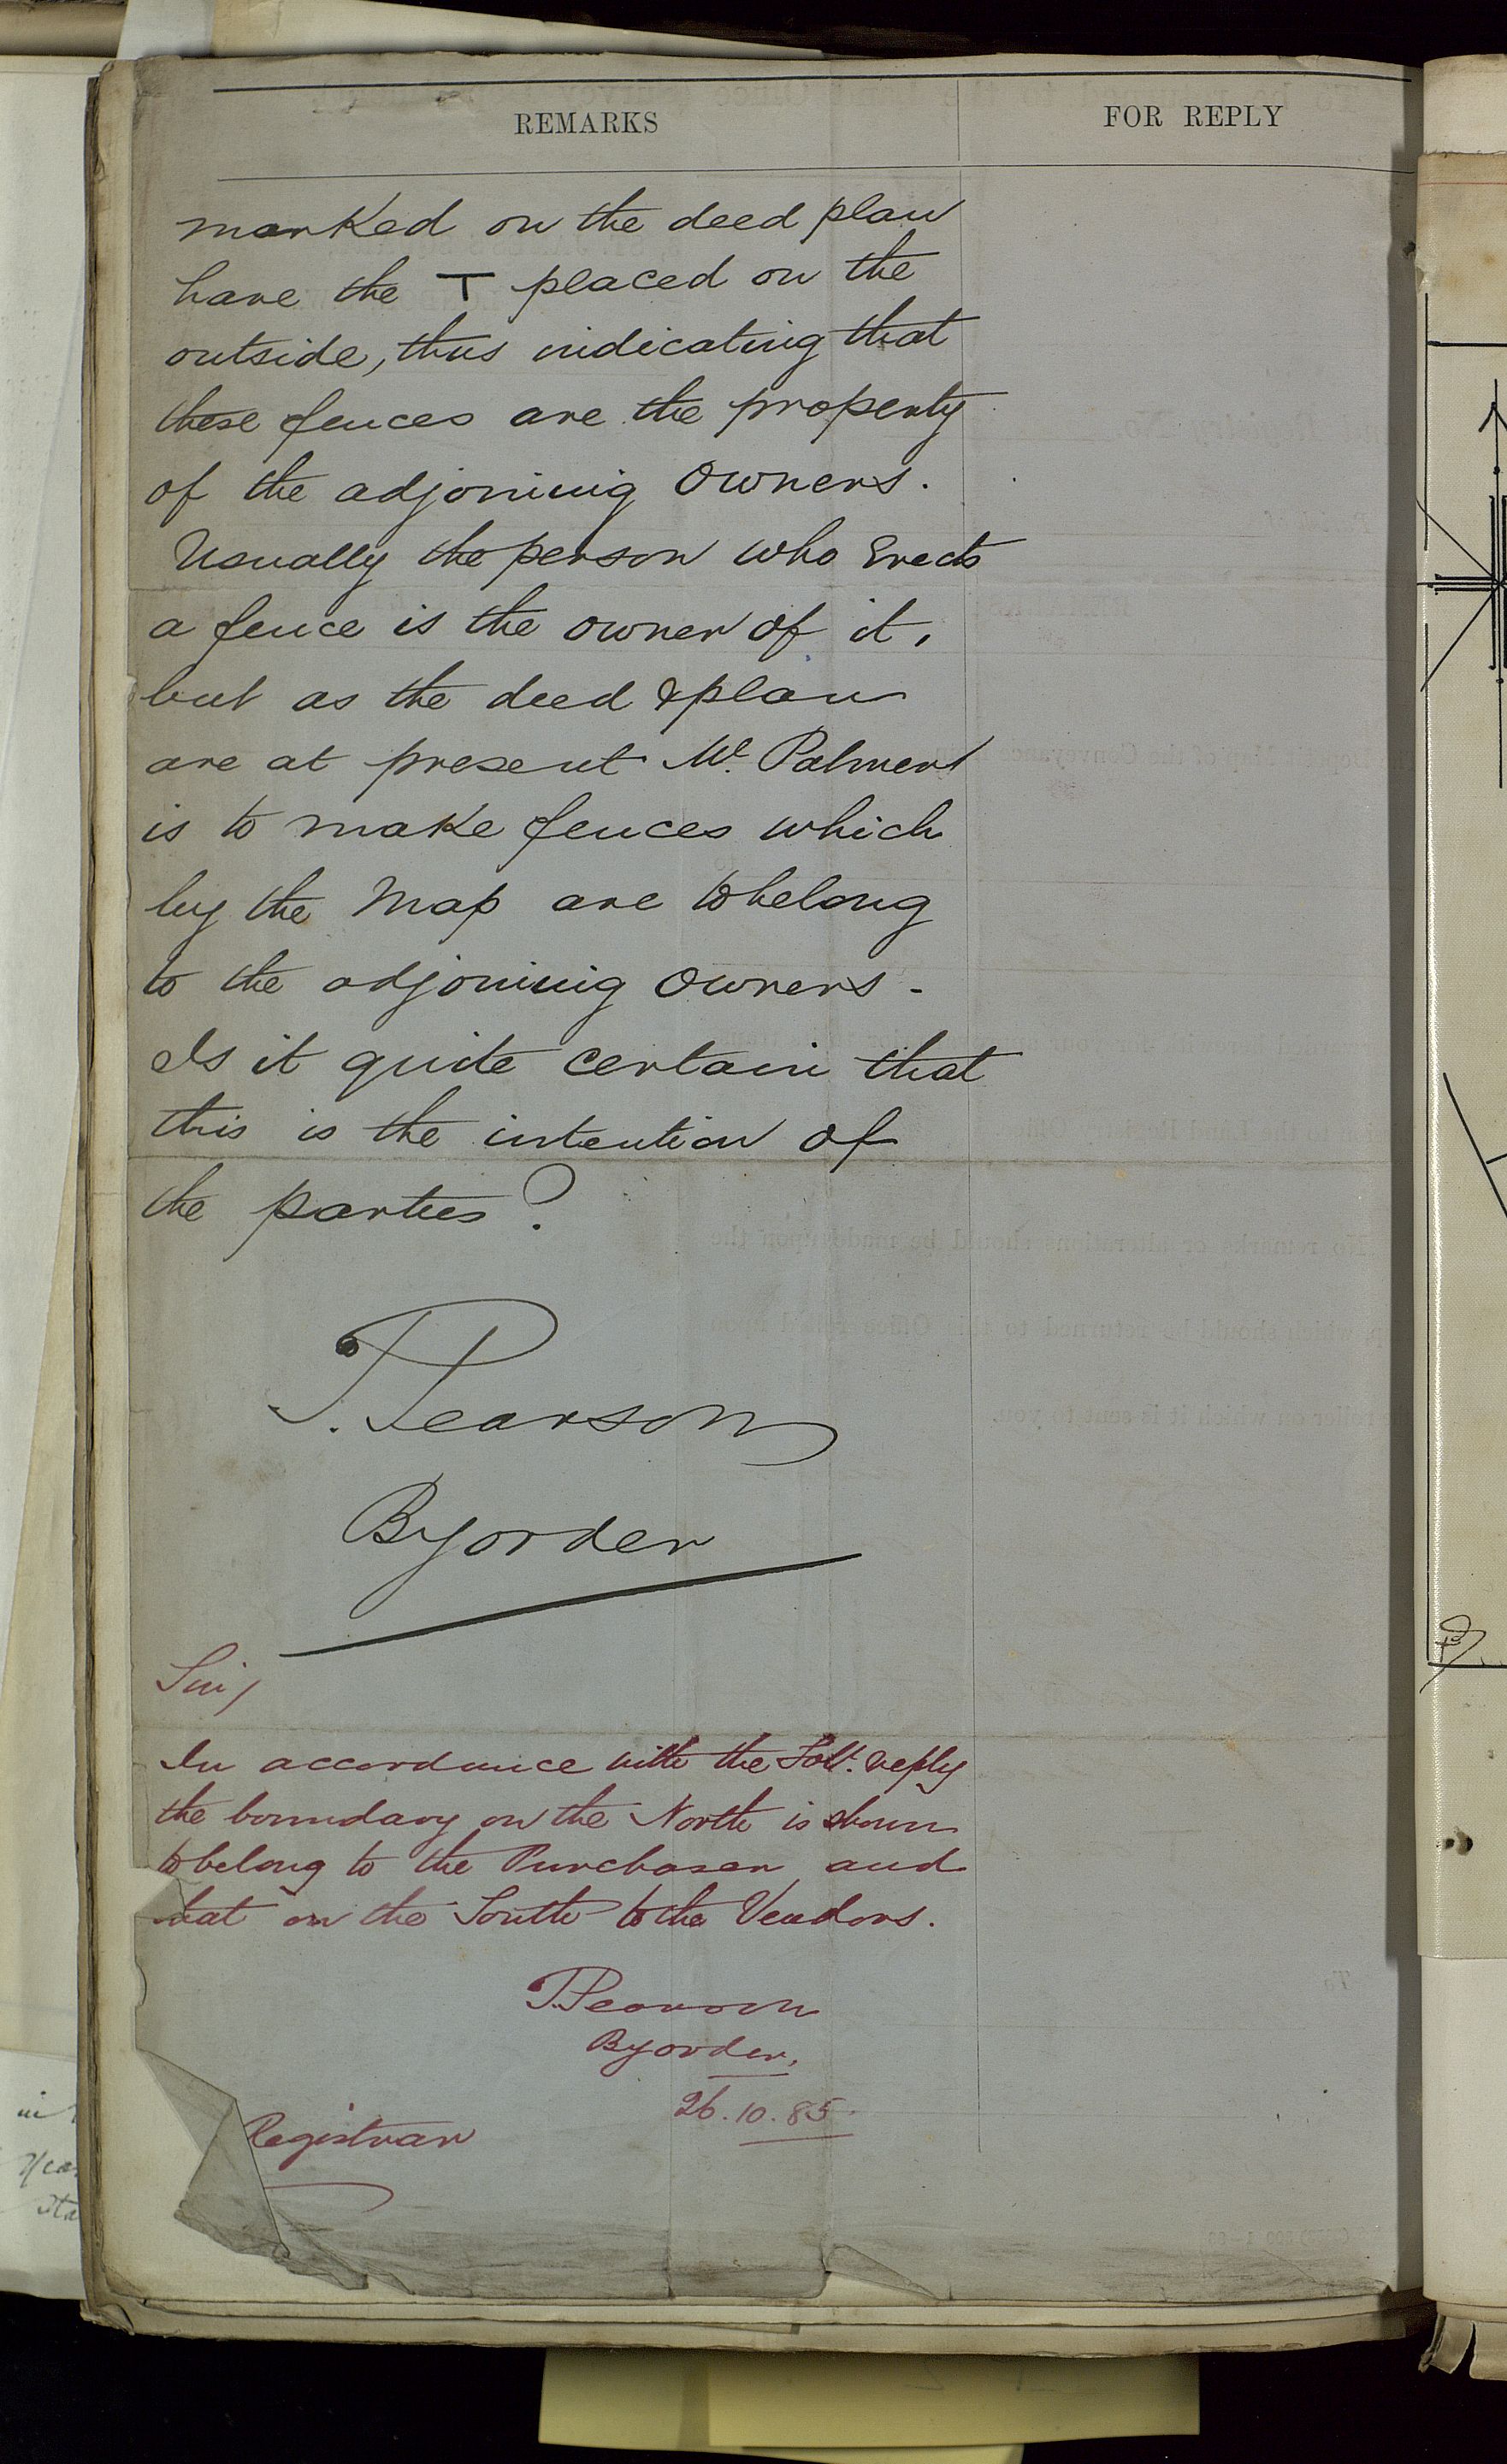 REMARKS
FOR REPLY
marked on the deed plan
have the T placed on the
outside, thus indicating that
these fences are the property
of the adjoining owners.
Usually the person who Erects
a fence is the owner of it,
but as the deed & plan
are at present Mr. Palmer
is to make fences which
by the Map are to belong
to the adjoining owners -
Is it quite certain that
this is the intention of
the parties?
T. Pearson
By order
Sir/
In accordance with the Solr. reply
the boundary on the North is shown
to belong to the Purchaser and
that on the South to the Vendors.
T. Pearson
By order,
26.10.85
Registrar